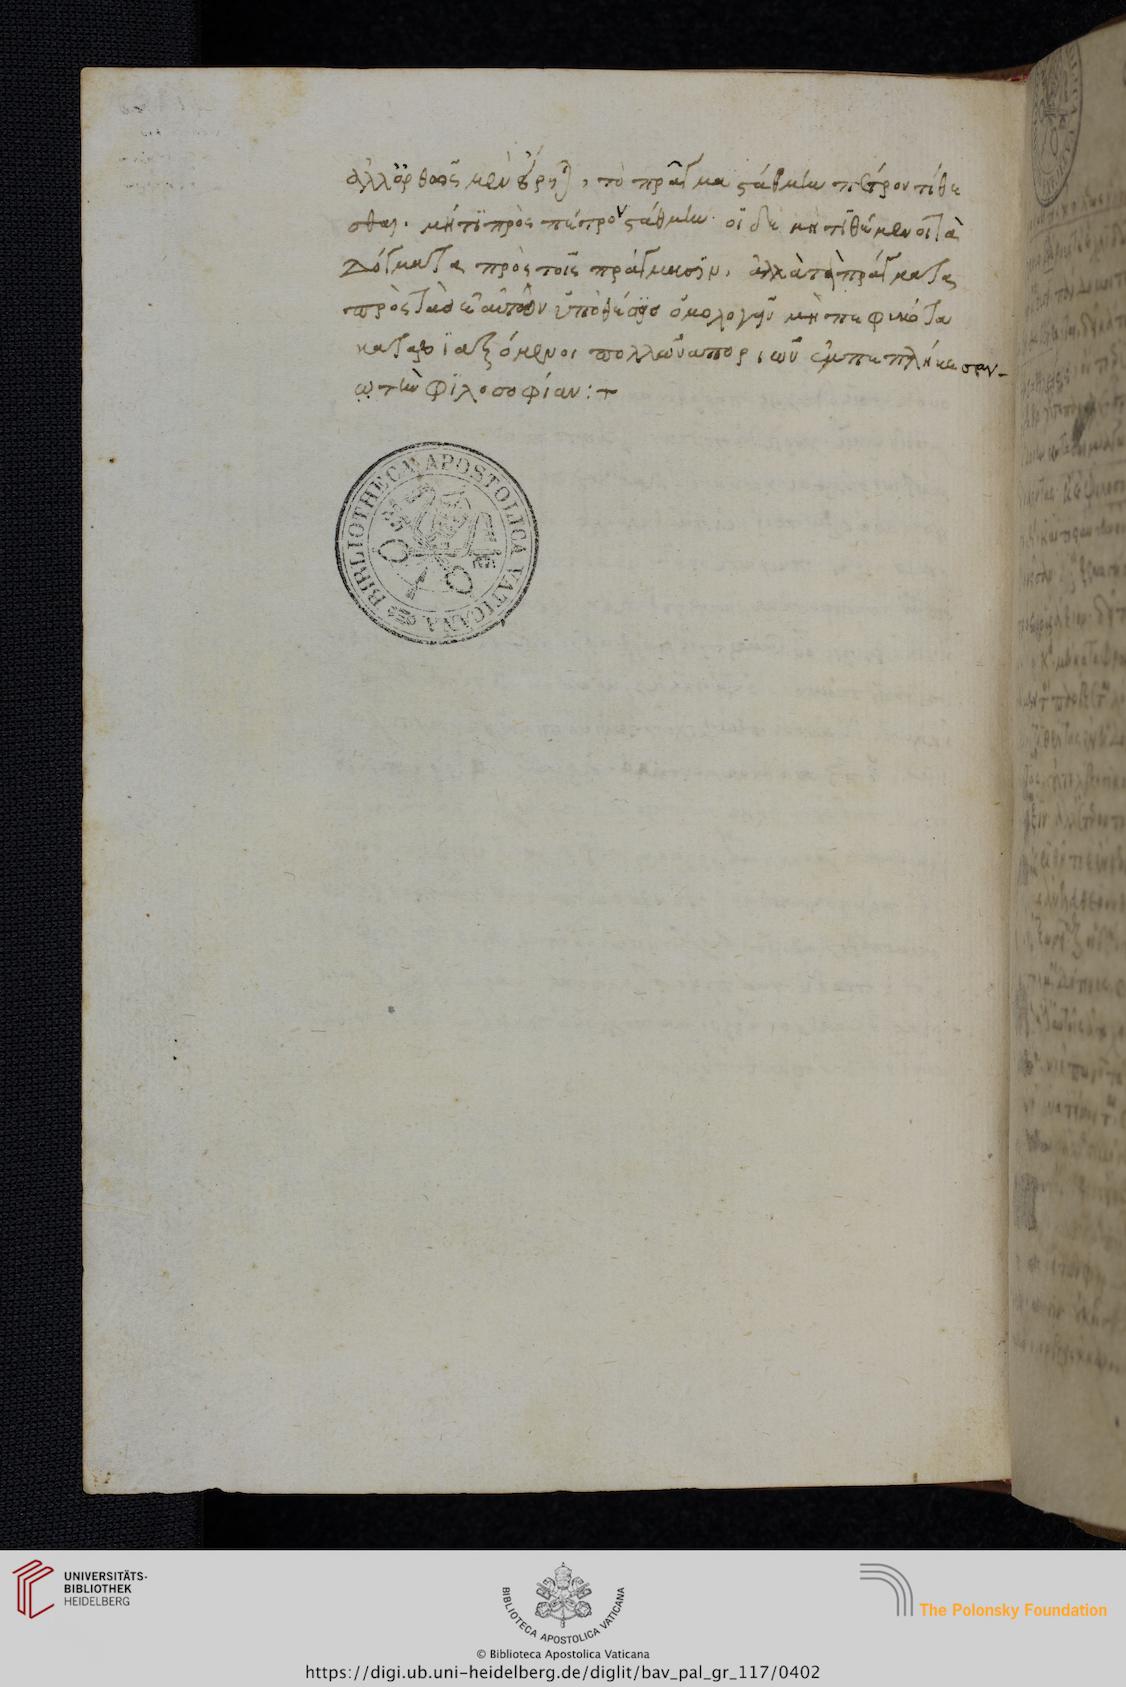 ἀλλ' ὀρθῶς μὲν εἴρηται, τὸ πρᾶγμα στάθμην πέτρον τίθε
σθαι. μή τι πρὸς πέτρον στάθμην. οἱ δὲ μὴ τιθέμενοι τὰ
δόγματα πρὸς τοῖς πράγμασιν, ἀλλὰ τὰ πράγματα
πρὸς τὰς ἑαυτῶν ὑποθέσεις ὁμολογεῖν μὴ πεφυκότα
καταβιαζόμενοι πολλῶν ἀποριῶν ἐμπεπλήκεσαν-
τὴν φιλοσοφίαν:+
BIBLIOTHECA APOSTOLICA VATICANA
UNIVERSITÄTS-
BIBLIOTHEK
HEIDELBERG
BIBLIOTECA APOSTOLICA VATICANA
The Polonsky Foundation
© Biblioteca Apostolica Vaticana
https://digi.ub.uni-heidelberg.de/diglit/bav_pal_gr_117/0402